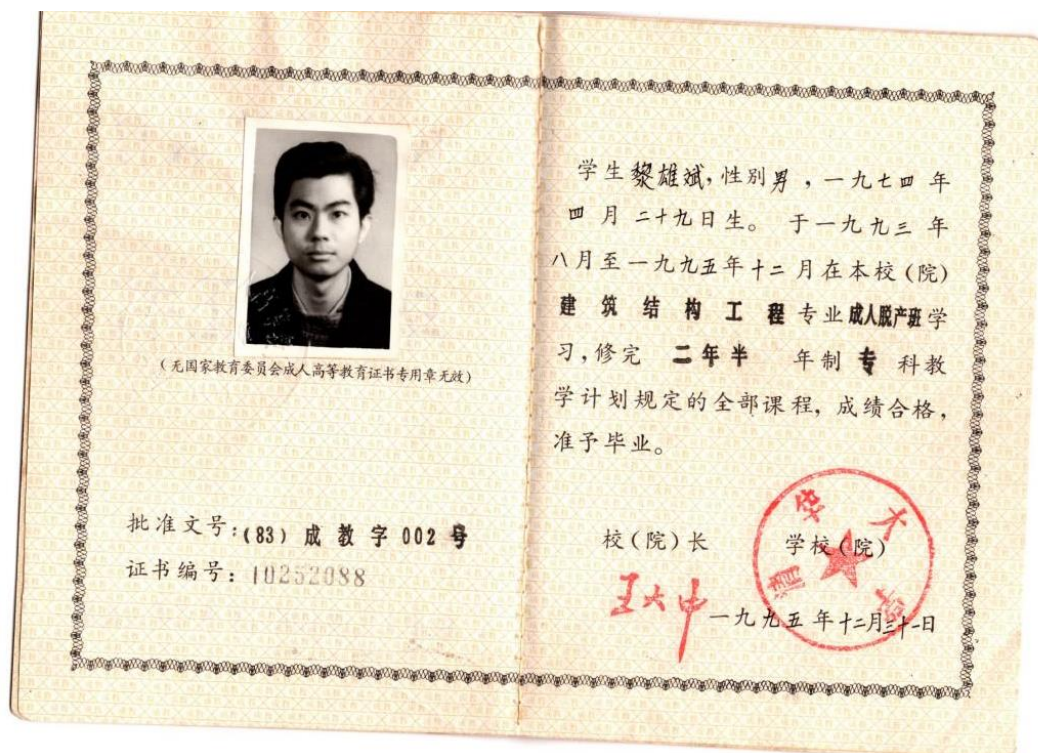 (无国家教育委员会成人高等教育证书专用章无效)
批准文号:(83)成教字002号
证书编号:10252088
学生黎雄斌,性别男,一九七四年
四月二十九日生。于一九九三年
八月至一九九五年十二月在本校(院)
建筑结构工程专业成人脱产班学
习,修完 二年半 年制专科教
学计划规定的全部课程,成绩合格,
准予毕业。
校(院)长
学校(院)
清华大学
王大中
一九九五年十二月三十一日